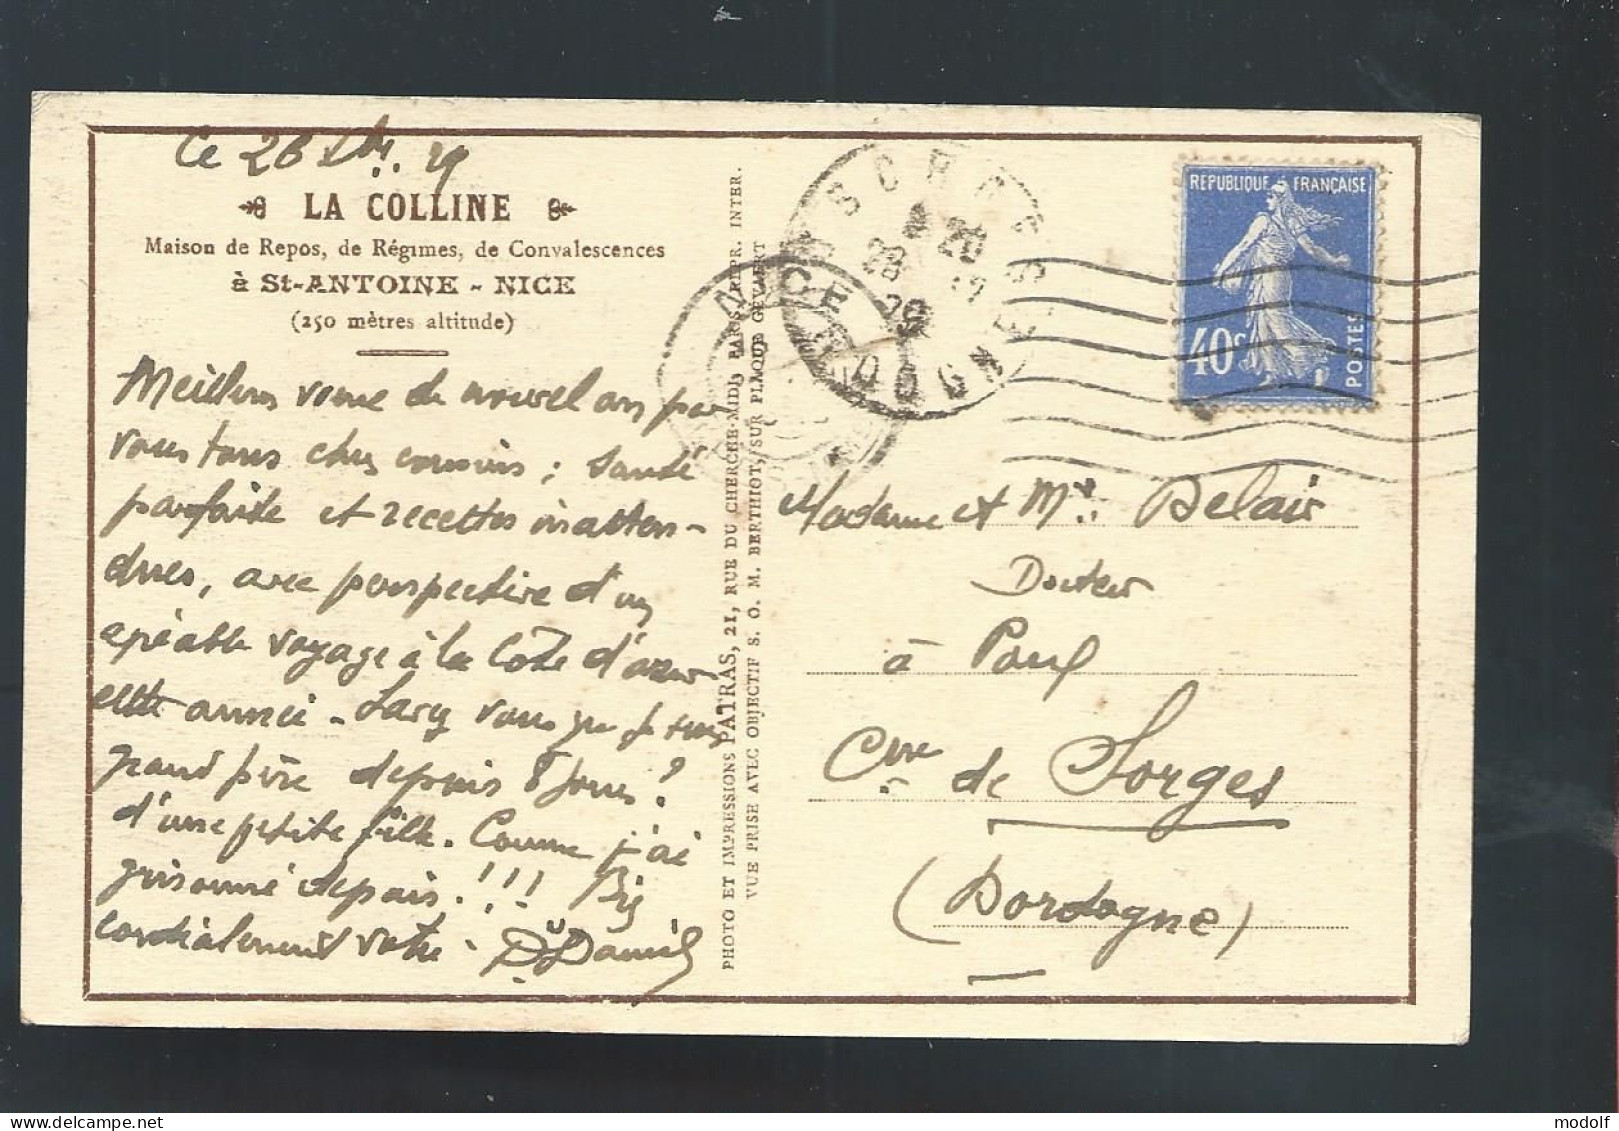 Ce 26 Xbre 29
LA COLLINE
Maison de Repos, de Régimes, de Convalescences
à St-ANTOINE - NICE
(250 mètres altitude)
Meilleurs voeux de nouvel an pour
vous tous chers cousins ; santé
parfaite et recettes inatten-
dues, avec perspective d'un
agréable voyage à la Côte d'azur
cette année - Savez vous que je suis
grand père depuis 8 jours ?
d'une petite fille. Comme j'ai
grisonné depuis !!! Bien
cordialement votre - Dr Daniel
PHOTO ET IMPRESSIONS PATRAS, 21, RUE DU CHERCHE-MIDI, PARIS. REPR. INTER.
VUE PRISE AVEC OBJECTIF S. O. M. BERTHIOT, SUR PLAQUE GEVAERT
SORGES
DORDOGNE
NICE
RÉPUBLIQUE FRANÇAISE
40c
POSTES
Madame et Mr. Delair
Docteur
à
Cne de Sorges
(Dordogne)
modolf